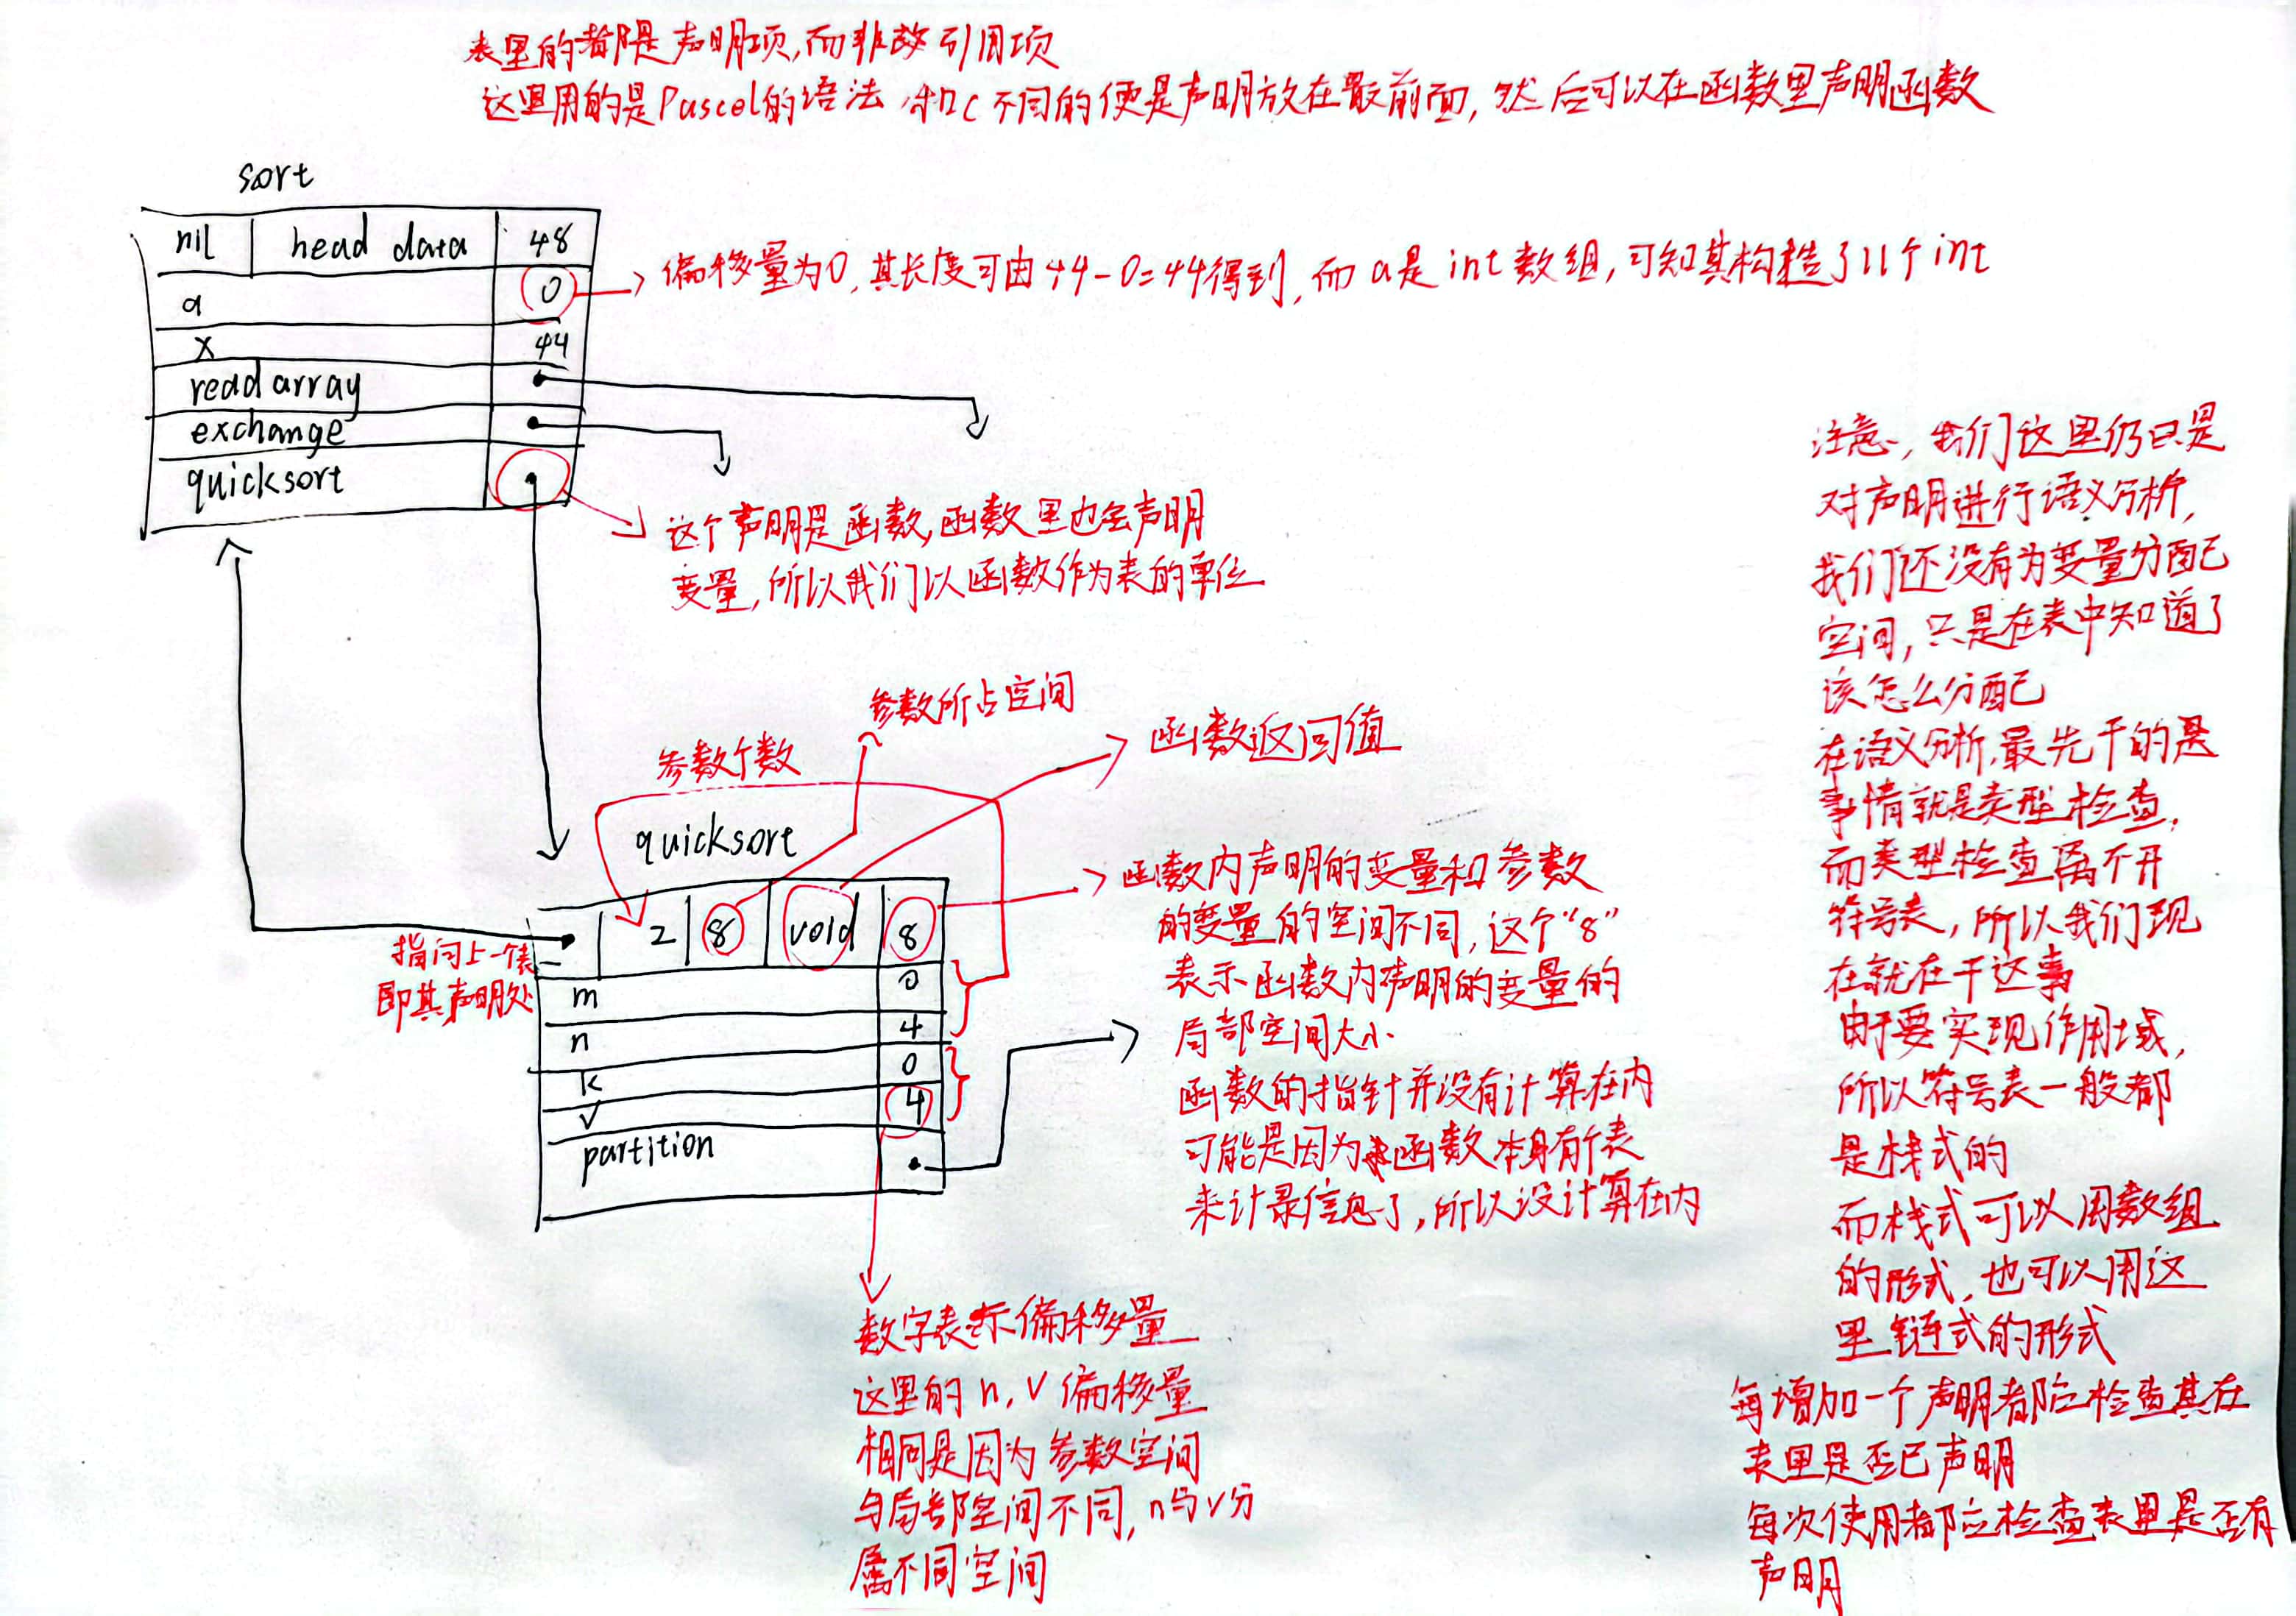 表里的都是声明项,而非故引用项
这里用的是Puscol的语法,和C不同的便是声明放在最前面,然后可以在函数里声明函数
sort
nil head data 48
a 0
x 44
readarray
exchange
quicksort
偏移量为0,其长度可由44-0=44得到,而a是int数组,可知其构造了11个int
这个声明是函数,函数里也会声明
变量,所以我们以函数作为表的单位
参数所占空间
参数个数
函数返回值
quicksort
2 8 void 8
m 0
n 4
k 0
v 4
partition
指向上一个表
即其声明处
函数内声明的变量和参数
的变量的空间不同,这个“8”
表示函数内声明的变量的
局部空间大小
函数的指针并没有计算在内
可能是因为函数本身有个表
来计录信息了,所以没计算在内
数字表示偏移量
这里的n,v偏移量
相同是因为参数空间
与局部空间不同,n与v分
属不同空间
注意,我们这里仍只是
对声明进行语义分析,
我们还没有为变量分配
空间,只是在表中知道了
该怎么分配
在语义分析,最先干的是
事情就是类型检查,
而类型检查离不开
符号表,所以我们现
在就在干这事
由于要实现作用域,
所以符号表一般都
是栈式的
而栈式可以用数组
的形式,也可以用这
里链式的形式
每增加一个声明都应检查其在
表里是否已声明
每次使用都应检查表里是否有
声明